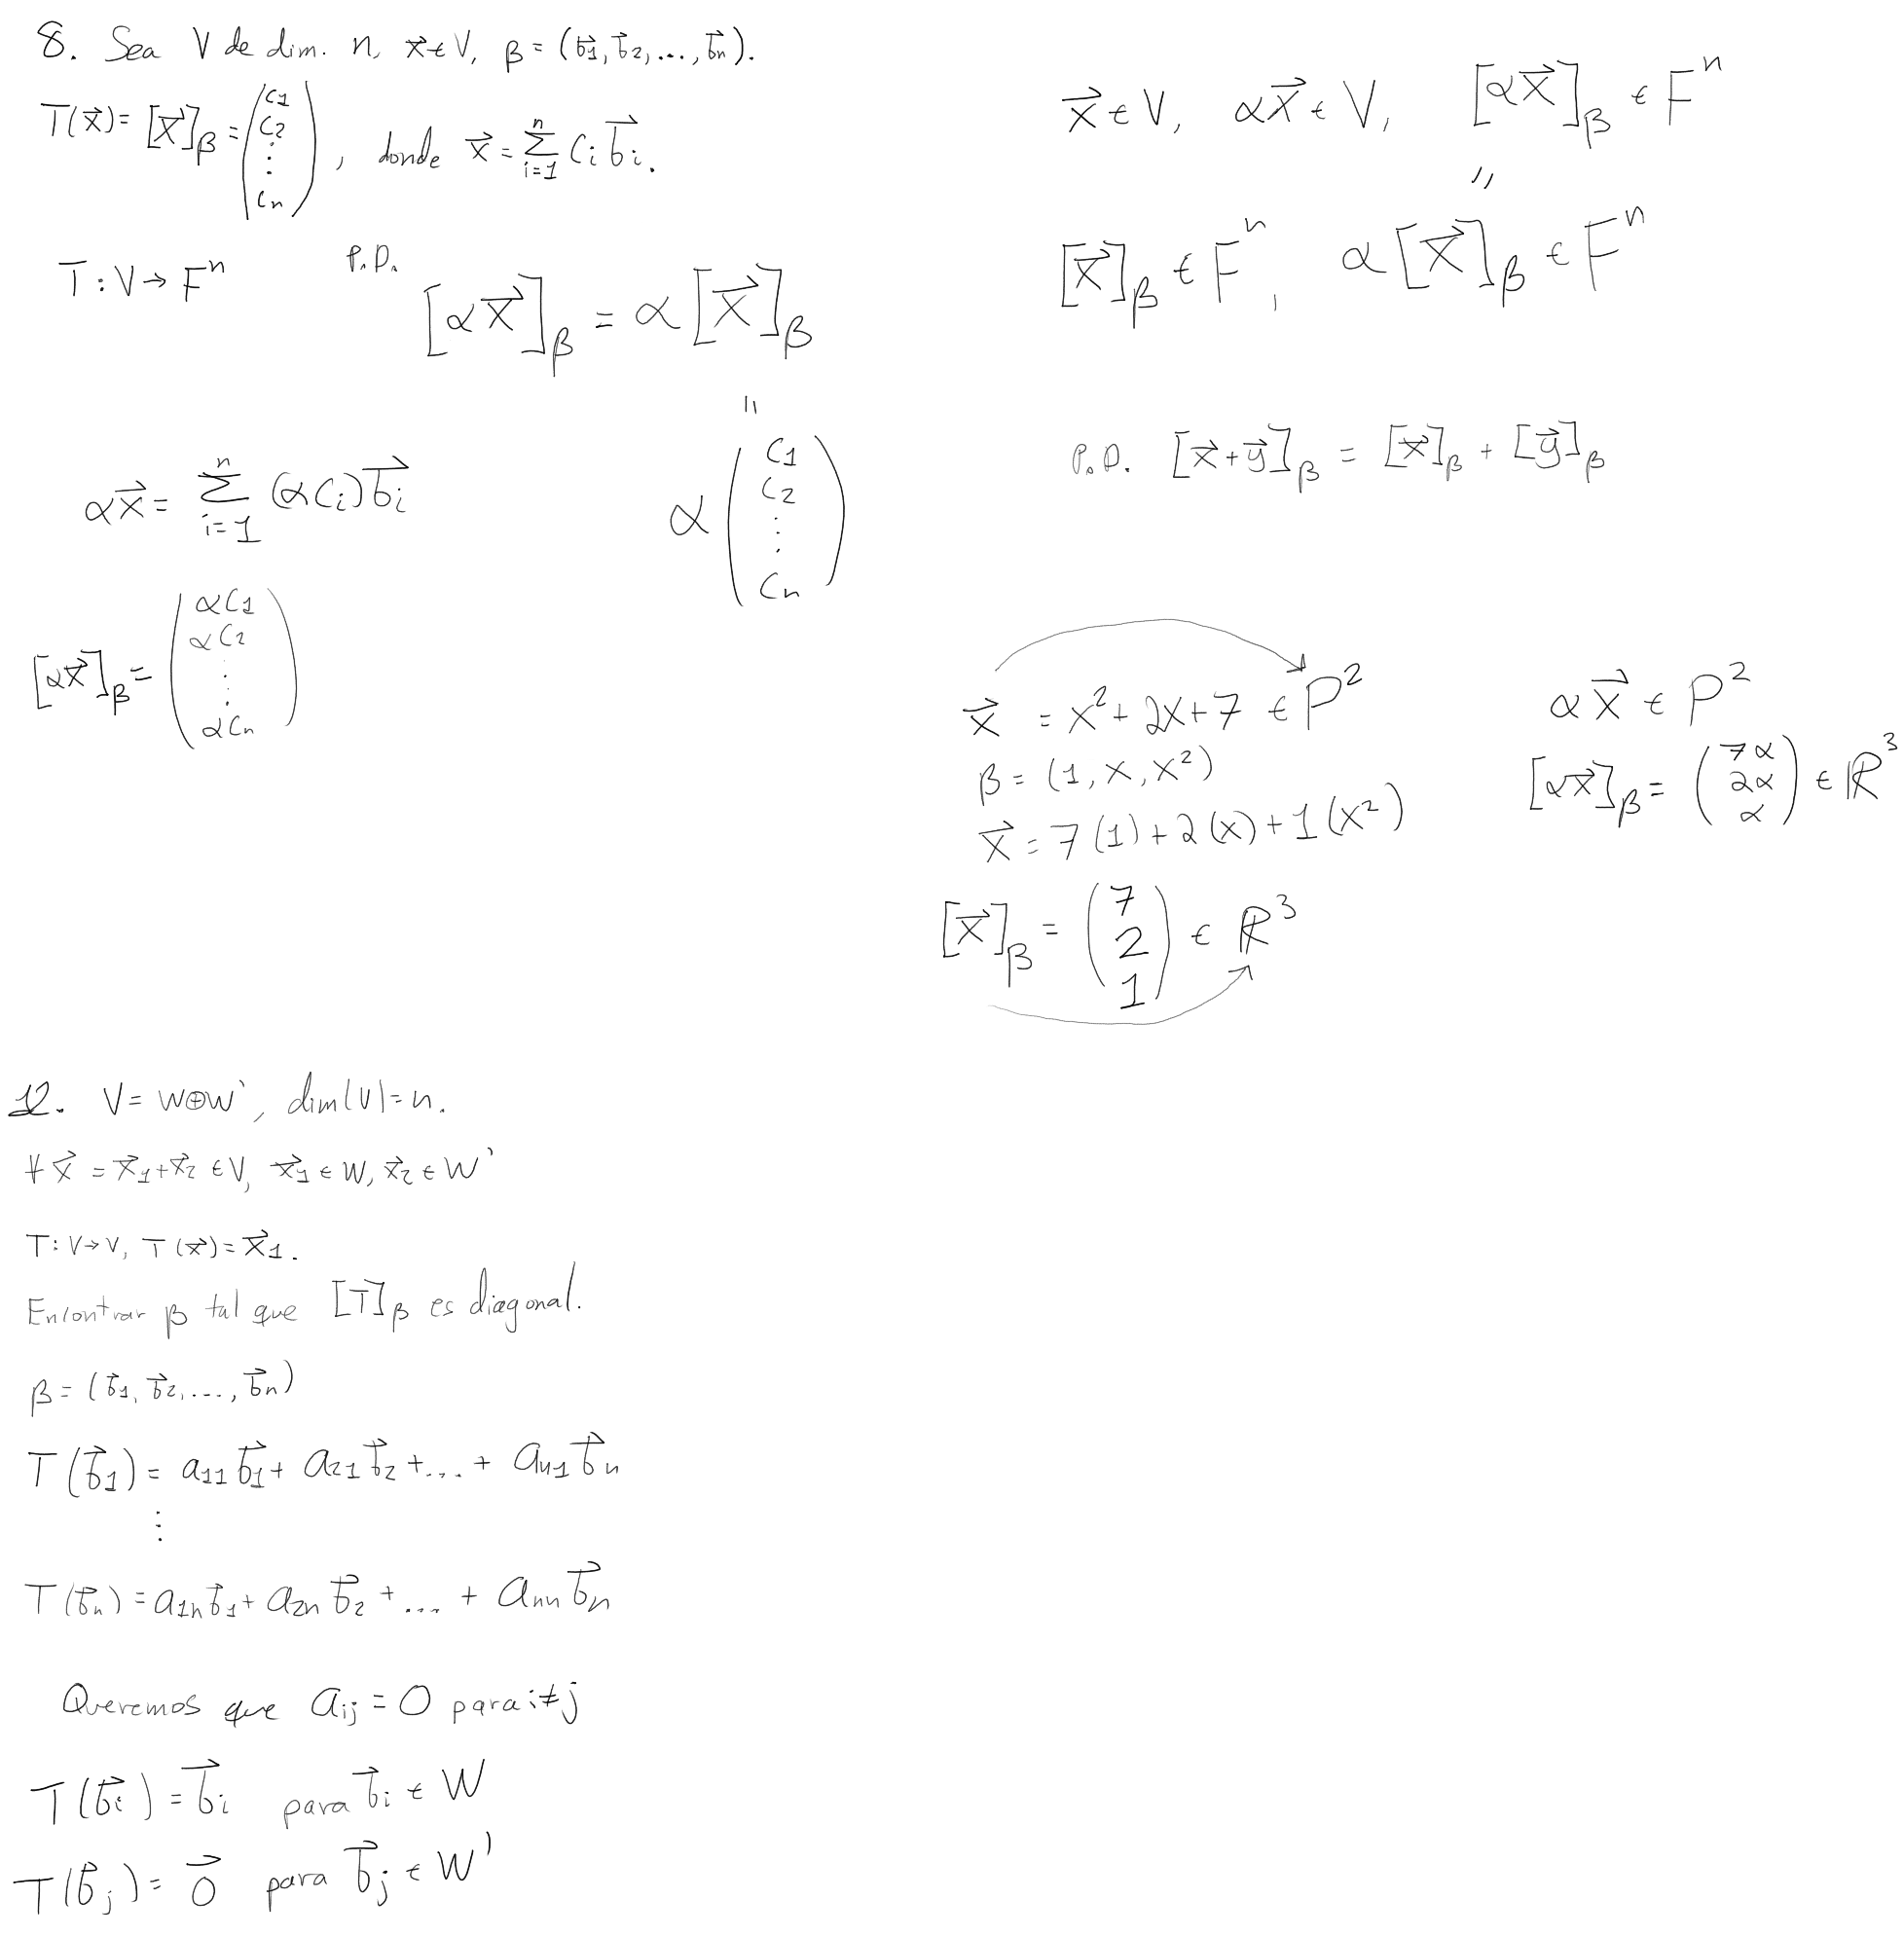 8. Sea V de dim. n, x⃗ ∈ V, β = (b⃗1, b⃗2, ..., b⃗n).
T(x⃗) = [x⃗]β = (c1 c2 ⋮ cn), donde x⃗ = ∑_{i=1}^{n} ci b⃗i.
T: V → F^n
P.D. [αx⃗]β = α[x⃗]β
"
α (c1 c2 ⋮ cn)
αx⃗ = ∑_{i=1}^{n} (αci) b⃗i
[αx⃗]β = (αc1 αc2 ⋮ αcn)
x⃗ ∈ V, αx⃗ ∈ V, [αx⃗]β ∈ F^n
"
[x⃗]β ∈ F^n, α[x⃗]β ∈ F^n
P.D. [x⃗+y⃗]β = [x⃗]β + [y⃗]β
x⃗ = x²+2x+7 ∈ P²
β = (1, x, x²)
x⃗ = 7(1)+2(x)+1(x²)
[x⃗]β = (7 2 1) ∈ ℝ³
αx⃗ ∈ P²
[αx⃗]β = (7α 2α α) ∈ ℝ³
12. V = W⊕W', dim(V)=n.
∀ x⃗ = x⃗1+x⃗2 ∈ V, x⃗1 ∈ W, x⃗2 ∈ W'
T: V→V, T(x⃗) = x⃗1.
Encontrar β tal que [T]β es diagonal.
β = (b⃗1, b⃗2, ..., b⃗n)
T(b⃗1) = a11 b⃗1 + a21 b⃗2 + ... + an1 b⃗n
⋮
T(b⃗n) = a1n b⃗1 + a2n b⃗2 + ... + ann b⃗n
Queremos que aij = 0 para i≠j
T(b⃗i) = b⃗i para b⃗i ∈ W
T(b⃗j) = 0⃗ para b⃗j ∈ W'